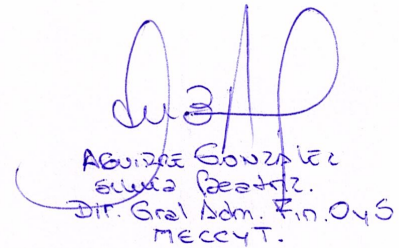 AGUIRRE GONZALEZ
Silvia Beatriz.
Dir. Gral Adm. Fin. OyS
MECCYT.